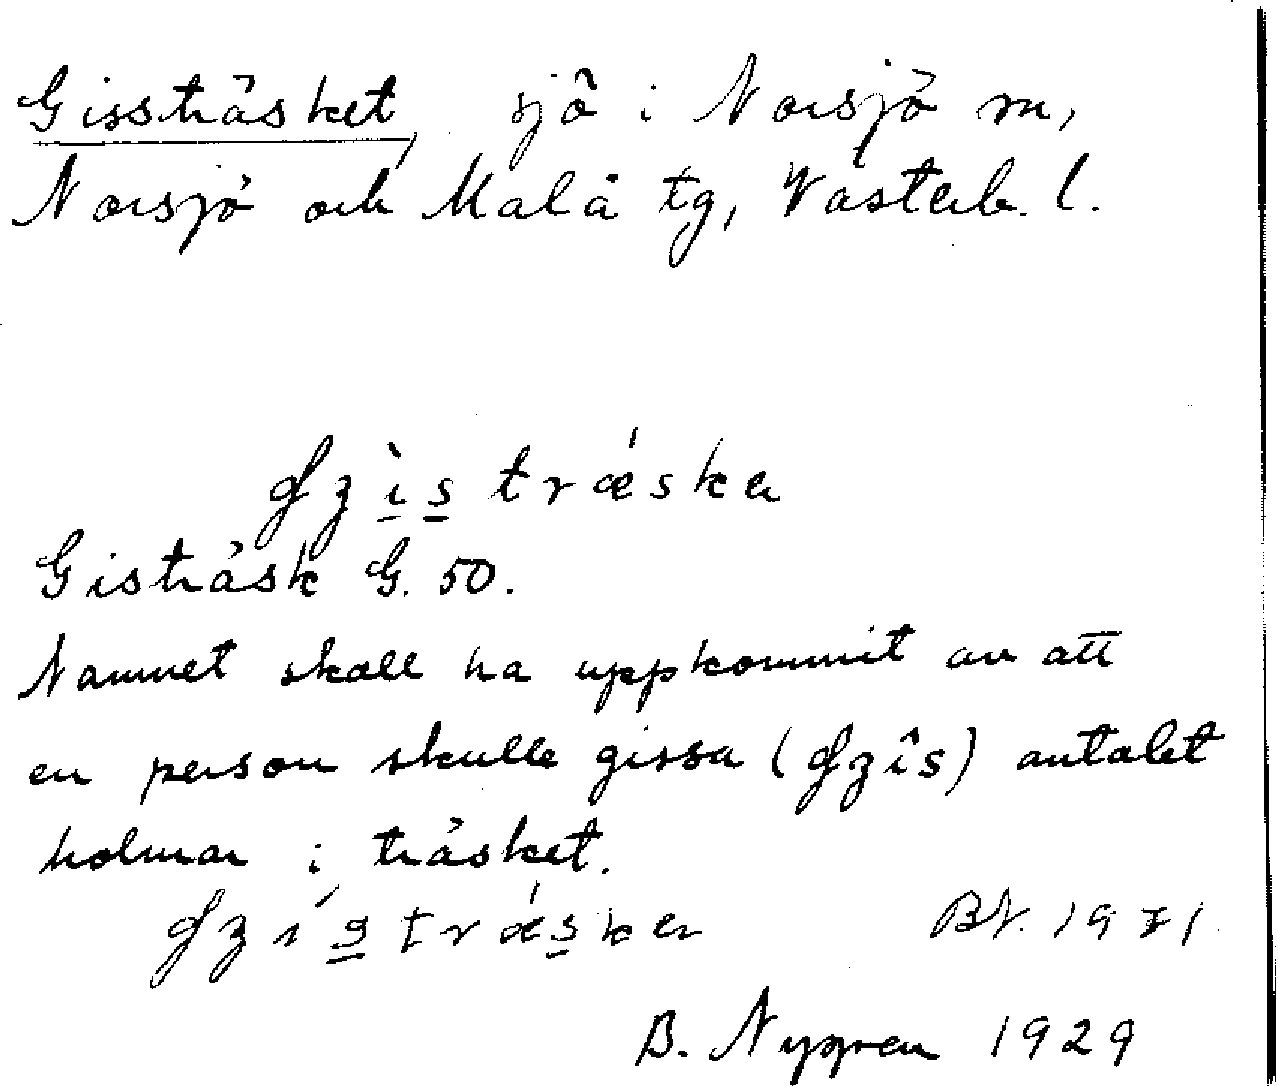 Gissträsket, sjö i Norsjö sn,
Norsjö och Malå tg, Västerb. l.
ʤʒìs træ´ska
Gisträsk G. 50.
Namnet skall ha uppkommit av att
en person skulle gissa (ʤʒîs) antalet
holmar i träsket.
ʤʒís træ´ska BN. 1971
B. Nygren 1929